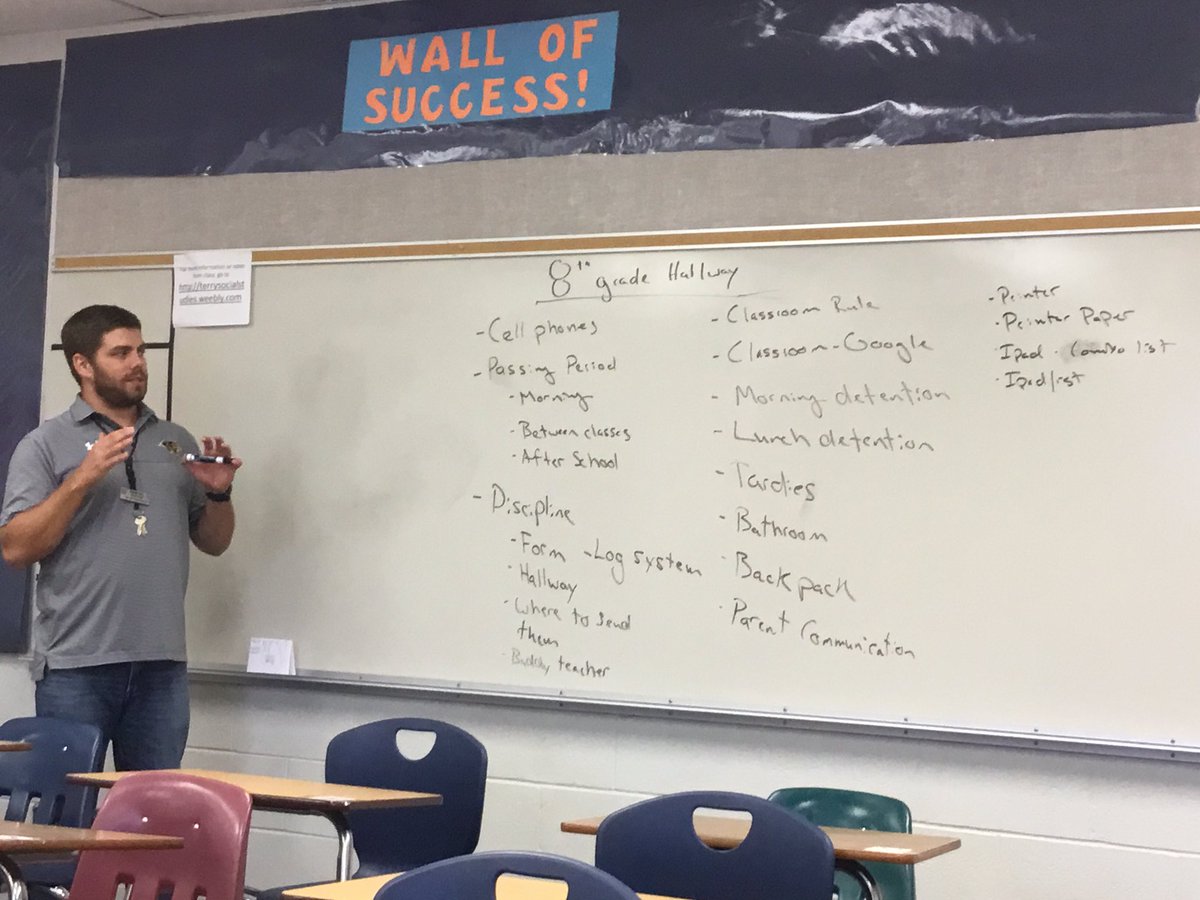 WALL OF
SUCCESS!
from class, go to
http://terrysocialst
udies.weebly.com
8th grade Hallway
- Cell phones
- Passing Period
- Morning
- Between classes
- After School
- Discipline
- Form - Log system
- Hallway
- Where to send
them
- Buddy teacher
- Classroom Rule
- Classroom - Google
- Morning detention
- Lunch detention
- Tardies
- Bathroom
- Backpack
- Parent Communication
- Printer
- Printer Paper
- Ipad - list
- Ipad